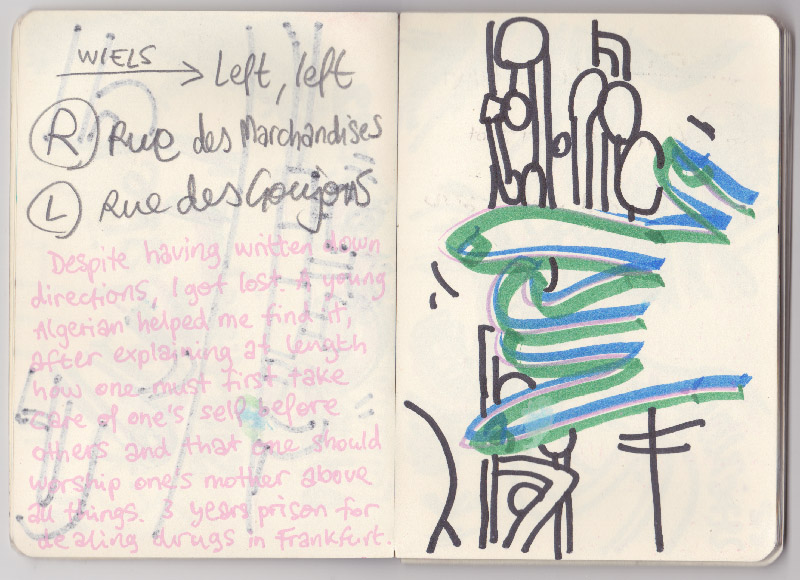 WIELS → Left, left
R Rue des Marchandises
L Rue des Goujons
Despite having written down
directions, I got lost. A young
Algerian helped me find it,
after explaining at length
how one must first take
care of one's self before
others and that one should
worship one's mother above
all things. 3 years prison for
dealing drugs in Frankfurt.